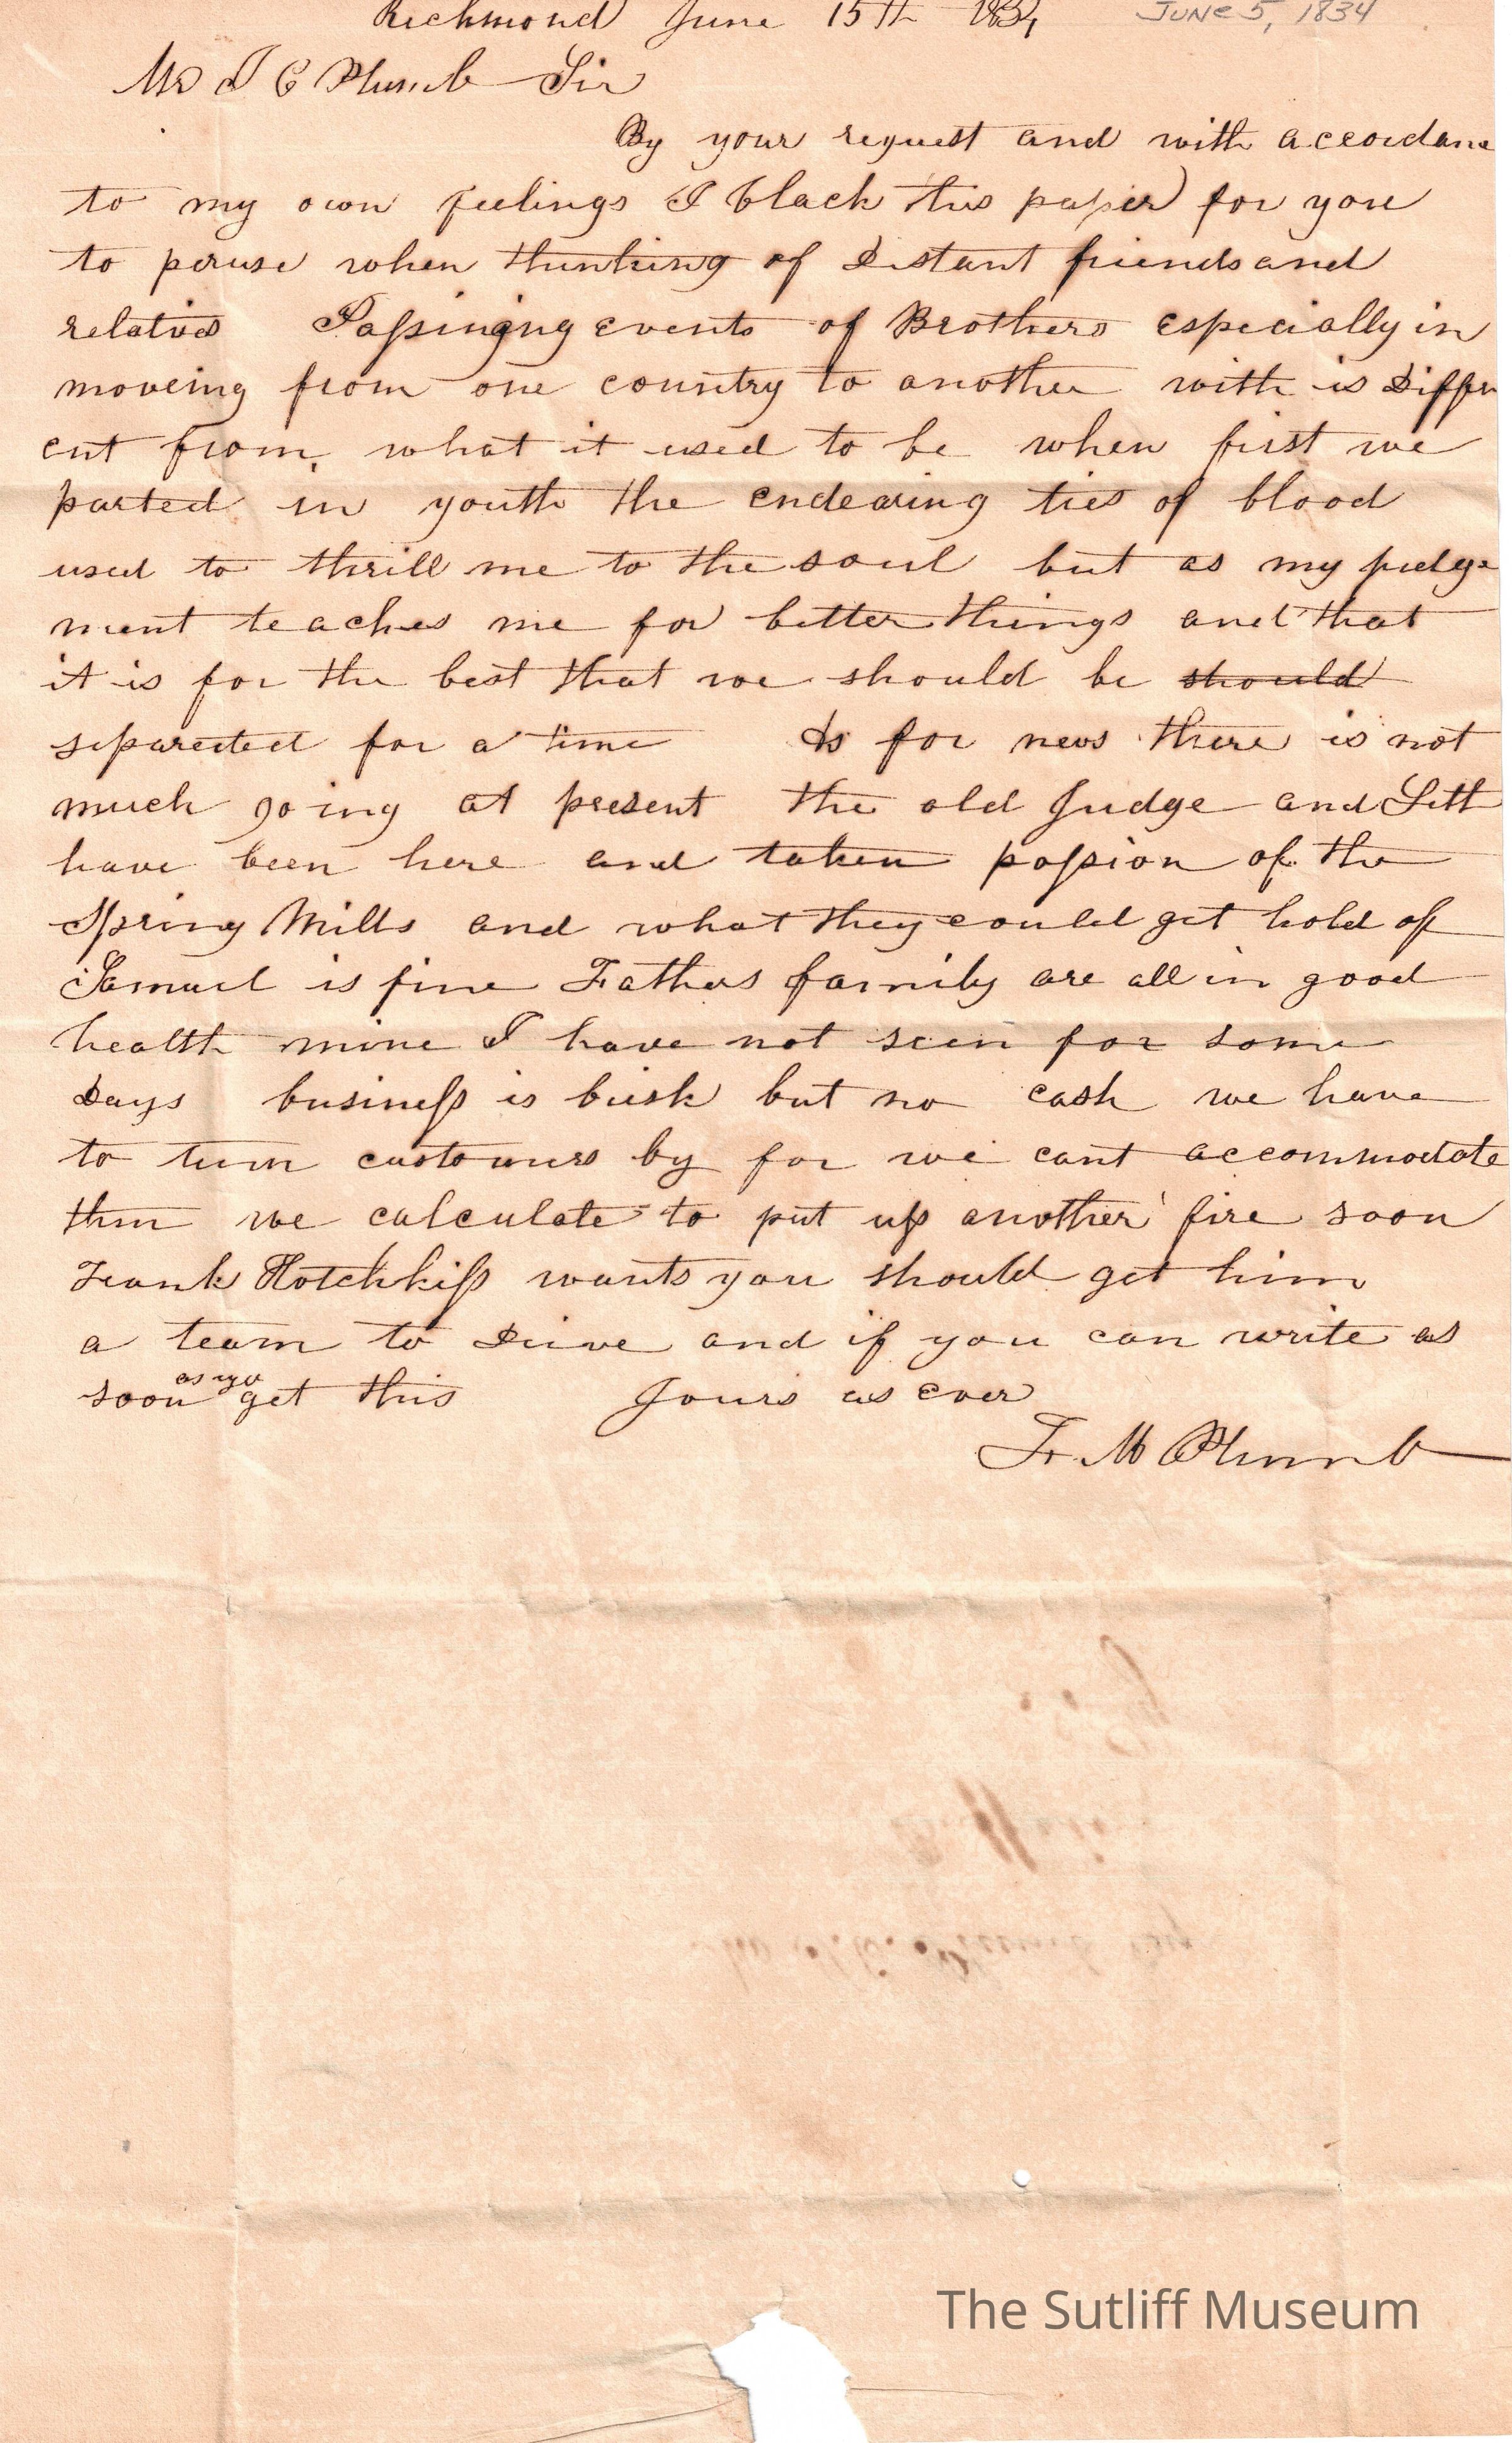 Richmond June 15th 1834 JUNE 5, 1834
Mr I C Plumb Sir
By your request and with accordanc
to my own feelings I black this paper for you
to peruse when thinking of distant friends and
relatives Passinging events of Brothers especially in
moveing from one country to another with is differ
ent from what it used to be when first we
parted in youth the endearing ties of blood
used to thrill me to the soul but as my judge
ment teaches me for better things and that
it is for the best that we should be should
separated for a time As for news there is not
much going at present the old Judge and Sett
have been here and taken possion of the
Spring Mills and what they could get hold of
Samuel is fine Fathers family are all in good
health mine I have not seen for some
days business is brisk but no cash we have
to turn customers by for we cant accommodate
them we calculate to put up another fire soon
Frank Hotchkiss wants you should get him
a team to drive and if you can write as
soon as yo get this Yours as ever
F. M Plumb
The Sutliff Museum